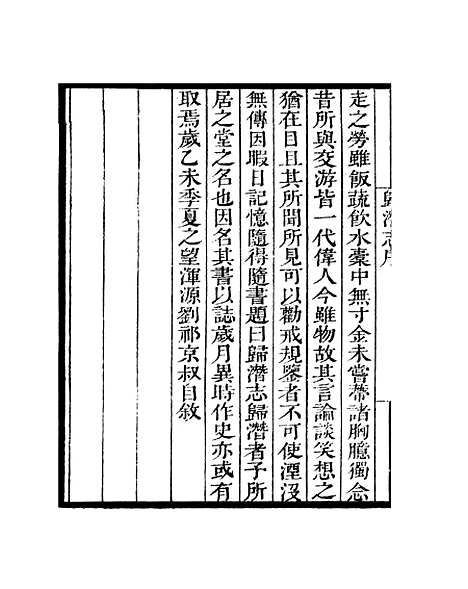 歸潛志序
走之勞雖飯蔬飲水橐中無寸金未嘗蔕諸胸臆獨念
昔所與交游皆一代偉人今雖物故其言論談笑想之
猶在目且其所聞所見可以勸戒規鑒者不可使湮沒
無傳因暇日記憶隨得隨書題曰歸潛志歸潛者予所
居之堂之名也因名其書以誌歲月異時作史亦或有
取焉歲乙未季夏之望渾源劉祁京叔自敘